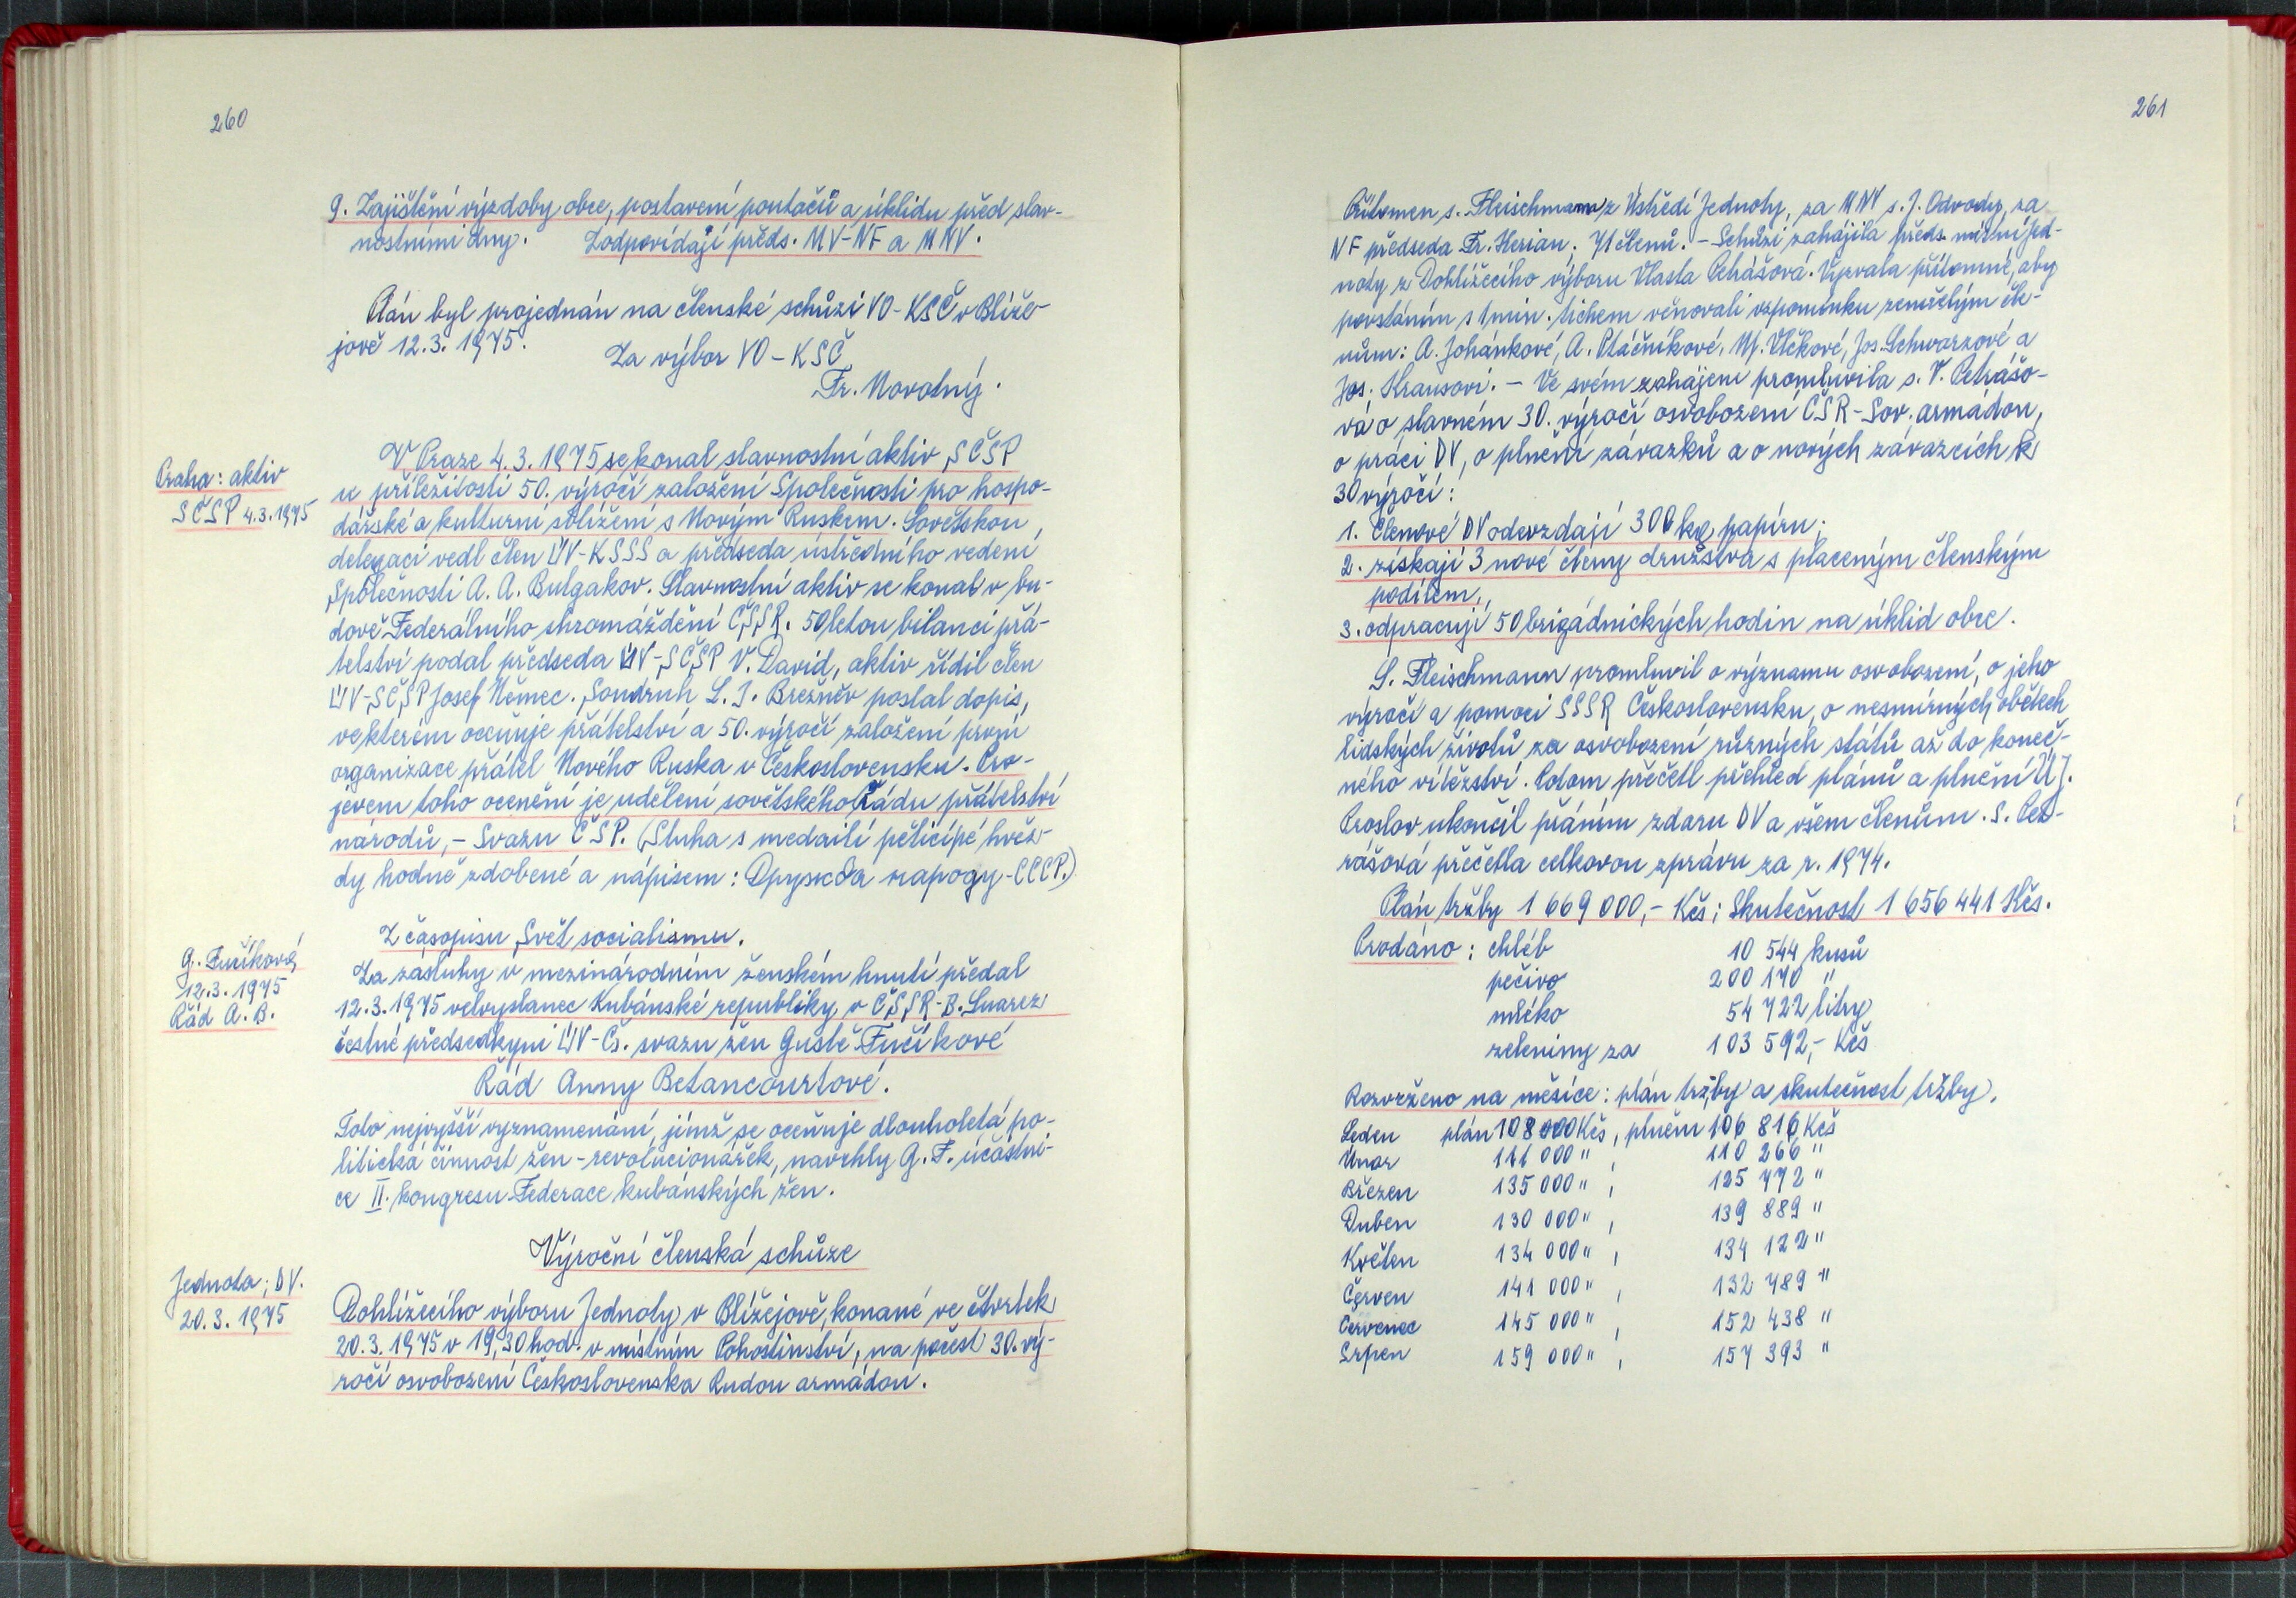 260
9. Zajištění výzdoby obce, postavení poutačů a úklidu před slav-
nostními dny. Zodpovídají předs. MV-NF a MNV.
Plán byl projednán na členské schůzi VO-KSČ v Blíže-
jově 12.3. 1975.
Za výbor VO-KSČ
Fr. Novotný.
Praha: aktiv
SČSP 4.3.1975
V Praze 4.3.1975 se konal slavnostní aktiv SČSP
u příležitosti 50. výročí založení Společnosti pro hospo-
dářské a kulturní sblížení s Novým Ruskem. Sovětskou
delegaci vedl člen ÚV-KSSS a předseda ústředního vedení
Společnosti A. A. Bulgakov. Slavnostní aktiv se konal v bu-
dově Federálního shromáždění ČSSR. 50letou bilanci přá-
telství podal předseda ÚV-SČSP V. David, aktiv řídil člen
ÚV-SČSP Josef Němec. Soudruh L. I. Brežněv poslal dopis,
ve kterém oceňuje přátelství a 50. výročí založení první
organizace přátel Nového Ruska v Československu. Pro-
jevem toho ocenění je udělení sovětského Řádu přátelství
národů, - Svazu ČSP. (Stuha s medailí pěticípé hvěz-
dy hodně zdobené a nápisem: Дружба народу-СССР.)
G. Fučíková
12.3. 1975
Řád A. B.
Z časopisu Svět socialismu.
Za zásluhy v mezinárodním ženském hnutí předal
12.3.1975 velvyslanec Kubánské republiky v ČSSR-B. Suarez
čestné předsedkyni ÚV-Čs. svazu žen Gustě Fučíkové
Řád Anny Betancourtové.
Toto nejvyšší vyznamenání, jímž se oceňuje dlouholetá po-
litická činnost žen-revolucionářek, navrhly G. F. účastni-
ce II. kongresu Federace kubánských žen.
Výroční členská schůze
Jednota; DV.
20.3. 1975
Dohlížecího výboru Jednoty v Blížejově, konané ve čtvrtek
20.3.1975 v 19,30 hod. v místním Pohostinství, na počest 30. vý-
ročí osvobození Československa Rudou armádou.
261
Přítomen s. Fleischmann z Ústředí Jednoty, za MNV s. J. Odvody, za
NF předseda Fr. Herian; 71 členů. - Schůzi zahájila předs. místní jed-
noty z Dohlížecího výboru Vlasta Petrášová. Vyzvala přítomné, aby
povstáním s 1 min. tichem věnovali vzpomínku zemřelým čle-
nům: A. Johánkové, A. Ptáčníkové, M. Vlčkové, Jos. Schwarzové a
Jos. Krausovi. - Ve svém zahájení promluvila s. V. Petrášo-
vá o slavném 30. výročí osvobození ČSR-Sov. armádou,
o práci DV, o plnění závazků a o nových závazcích k
30 výročí:
1. Členové DV odevzdají 300 kg papíru;
2. získají 3 nové členy družstva s placeným členským
podílem,
3. odpracují 50 brigádnických hodin na úklid obce.
S. Fleischmann promluvil o významu osvobození, o jeho
výročí a pomoci SSSR Československu, o nesmírných obětech
lidských životů za osvobození různých států až do koneč-
ného vítězství. Potom přečetl přehled plánů a plnění ÚJ.
Proslov ukončil přáním zdaru DV a všem členům. S. Pet-
rášová přečetla celkovou zprávu za r. 1974.
Plán tržby 1 669 000,- Kčs; Skutečnost 1 656 441 Kčs.
Prodáno: chléb 10 544 kusů
pečivo 200 170 "
mléko 54 722 litry
zeleniny za 103 592,- Kčs
Rozvrženo na měsíce: plán tržby a skutečnost tržby.
Leden plán 108 000 Kčs, plnění 106 816 Kčs
Únor 111 000 " , 110 266 "
Březen 135 000 " , 125 772 "
Duben 130 000 " , 139 889 "
Květen 134 000 " , 134 122 "
Červen 141 000 " , 132 789 "
Červenec 145 000 " , 152 438 "
Srpen 159 000 " , 157 393 "